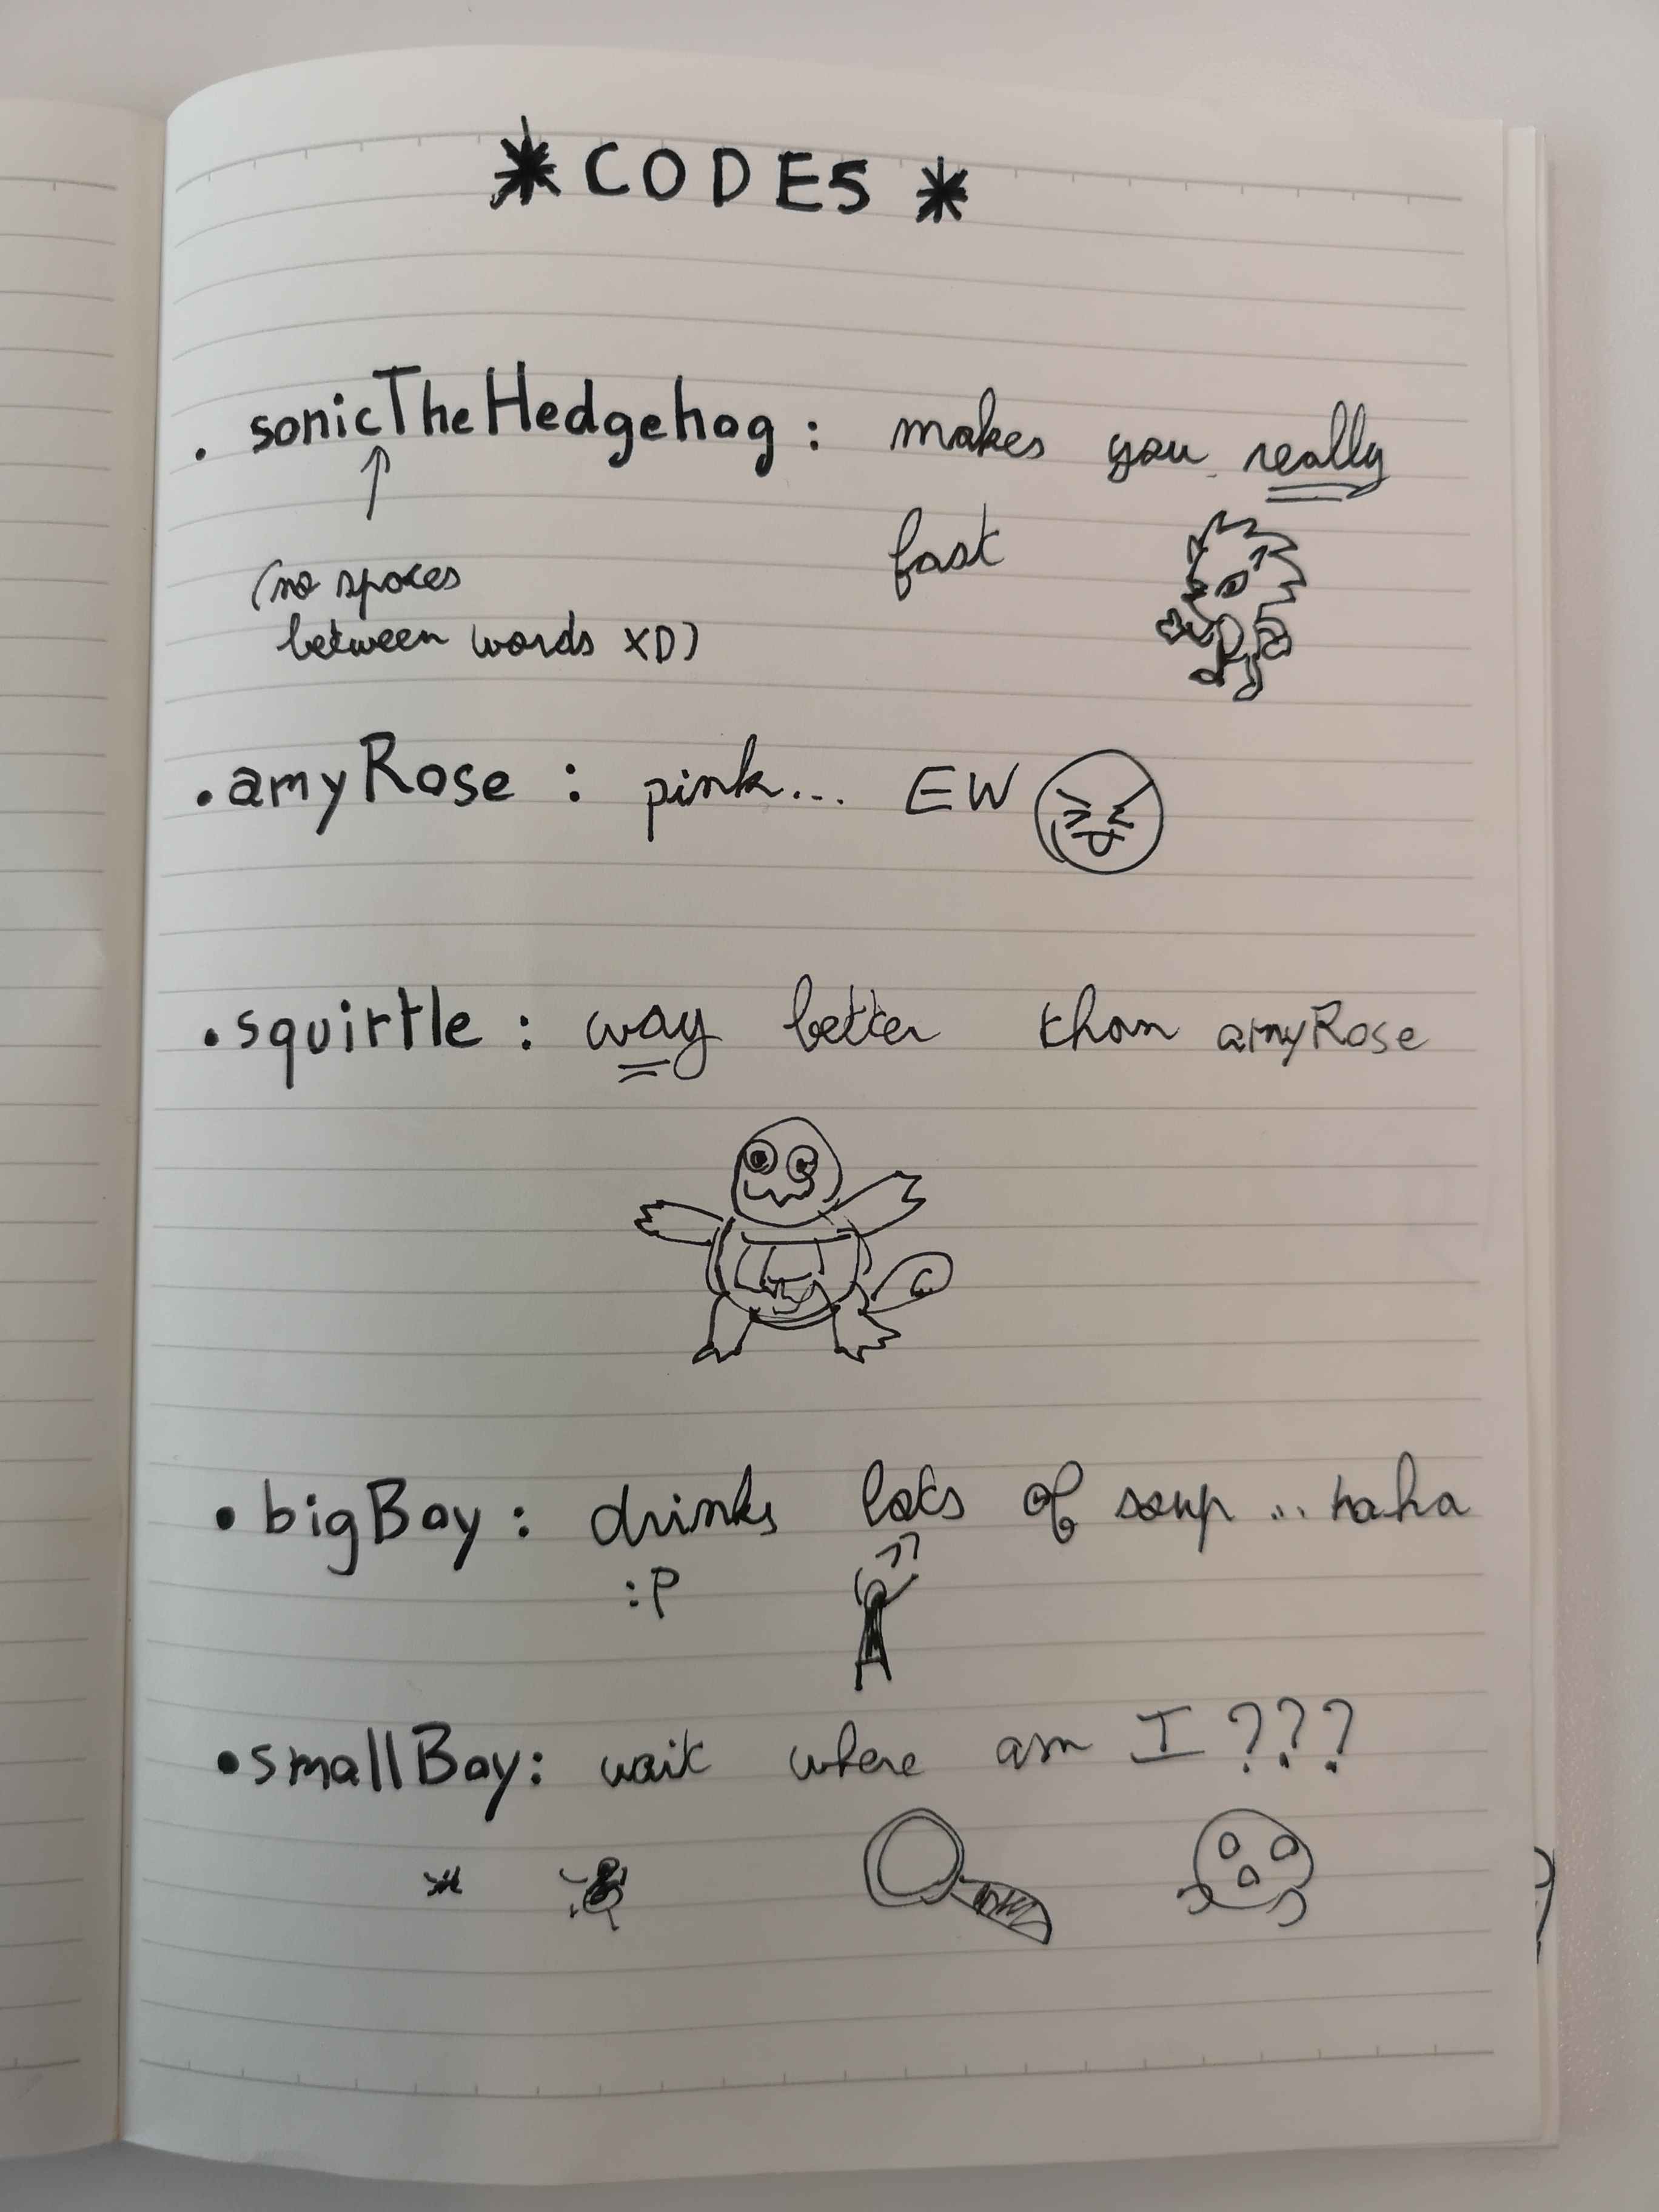 * CODES *
. sonicTheHedgehog : makes you really
fast
(no spaces
between words XD)
• amyRose : pink... EW
• squirtle : way better than amyRose
• bigBoy : drinks lots of soup ... haha
:P
• smallBoy : wait where am I ???